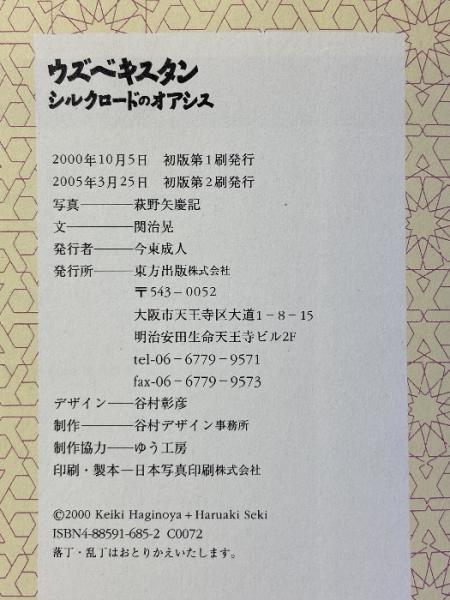 ウズベキスタン
シルクロードのオアシス
2000年10月5日　初版第1刷発行
2005年3月25日　初版第2刷発行
写真――――萩野矢慶記
文―――――関治晃
発行者―――今東成人
発行所―――東方出版株式会社
〒543－0052
大阪市天王寺区大道1－8－15
明治安田生命天王寺ビル2F
tel-06－6779－9571
fax-06－6779－9573
デザイン――谷村彰彦
制作――――谷村デザイン事務所
制作協力――ゆう工房
印刷・製本―日本写真印刷株式会社
©2000 Keiki Haginoya＋Haruaki Seki
ISBN4-88591-685-2 C0072
落丁・乱丁はおとりかえいたします。